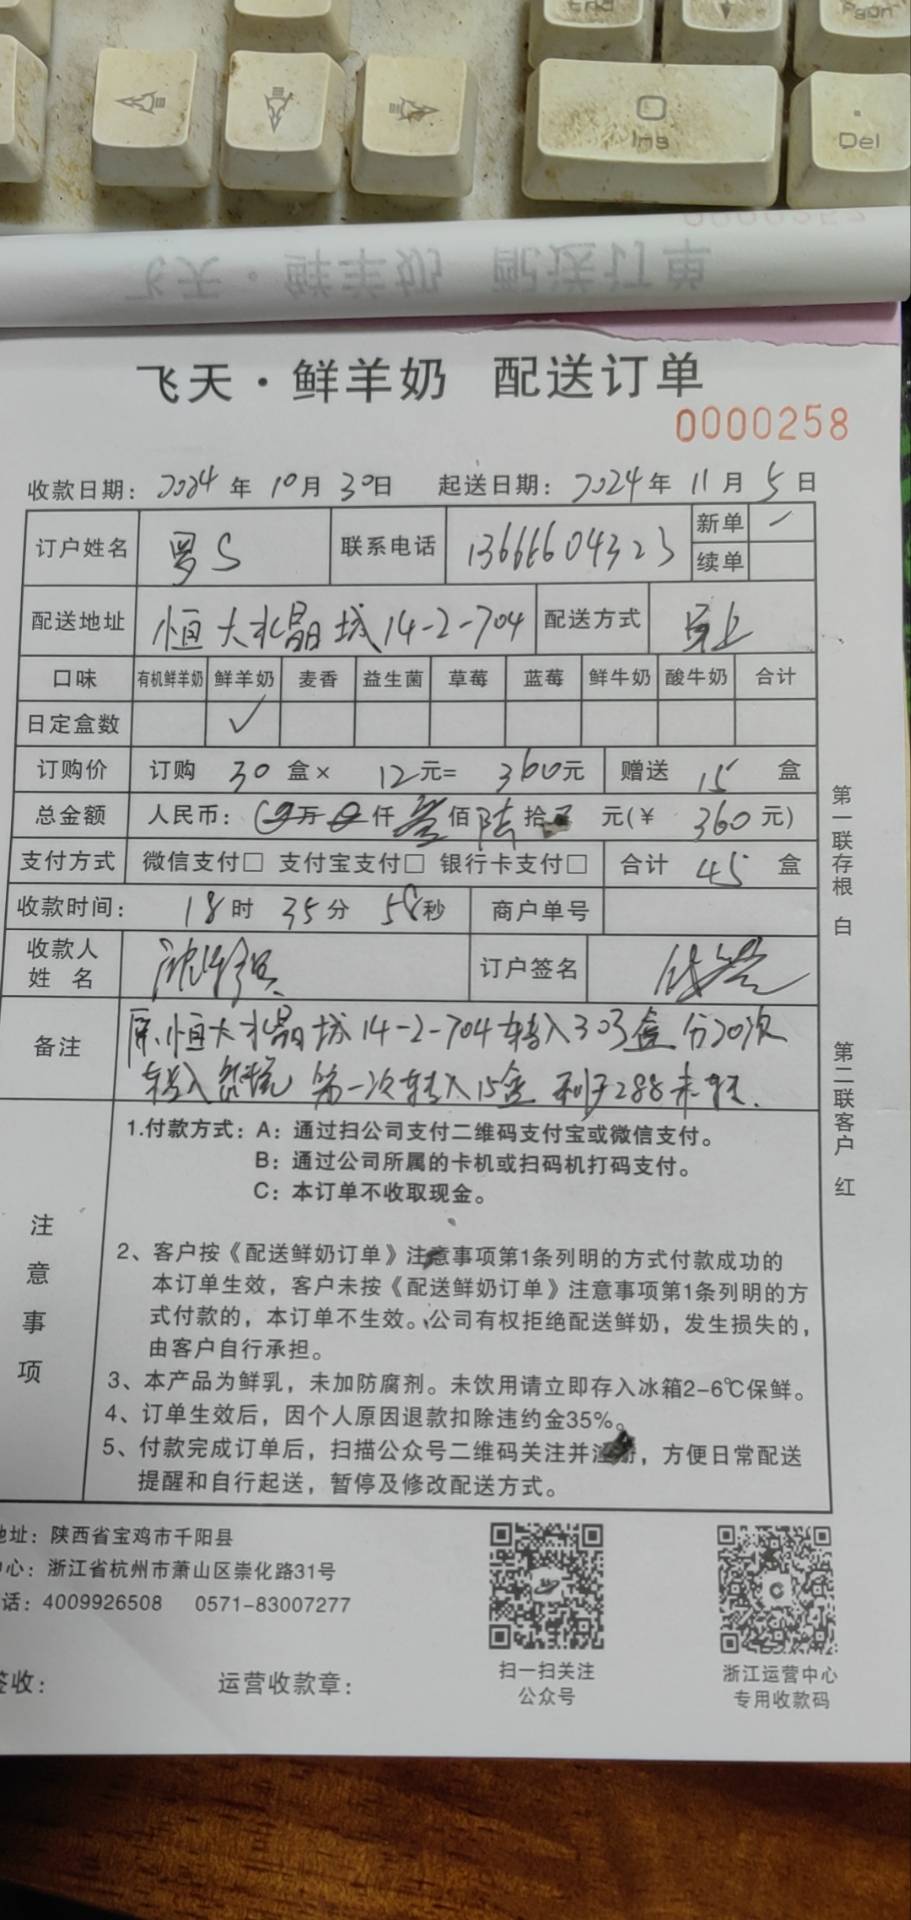 End
Pgdn
Ins
Del
0000257
飞天·鲜羊奶 配送订单
飞天·鲜羊奶 配送订单
0000258
收款日期: 2024 年 10 月 30 日 起送日期: 2024 年 11 月 5 日
订户姓名 罗S 联系电话 13666604323 新单 ✓
续单
配送地址 恒大水晶城14-2-704 配送方式
口味 有机鲜羊奶 鲜羊奶 麦香 益生菌 草莓 蓝莓 鲜牛奶 酸牛奶 合计
日定盒数 ✓
订购价 订购 30 盒× 12 元= 360元 赠送 15 盒
总金额 人民币: 万 仟 叁 佰 陆 拾 元(¥ 360 元)
支付方式 微信支付□ 支付宝支付□ 银行卡支付□ 合计 45 盒
收款时间: 18 时 35 分 58 秒 商户单号
收款人
姓 名
订户签名
备注 原恒大水晶城14-2-704转入303盒 分20次
转入 第一次转入15盒 288未转.
注意事项
1.付款方式: A: 通过扫公司支付二维码支付宝或微信支付。
B: 通过公司所属的卡机或扫码机打码支付。
C: 本订单不收取现金。
2、客户按《配送鲜奶订单》注意事项第1条列明的方式付款成功的
本订单生效, 客户未按《配送鲜奶订单》注意事项第1条列明的方
式付款的, 本订单不生效。公司有权拒绝配送鲜奶, 发生损失的,
由客户自行承担。
3、本产品为鲜乳, 未加防腐剂。未饮用请立即存入冰箱2-6℃保鲜。
4、订单生效后, 因个人原因退款扣除违约金35%。
5、付款完成订单后, 扫描公众号二维码关注并, 方便日常配送
提醒和自行起送, 暂停及修改配送方式。
第一联存根 白
第二联客户 红
地址: 陕西省宝鸡市千阳县
中心: 浙江省杭州市萧山区崇化路31号
话: 4009926508 0571-83007277
签收: 运营收款章:
扫一扫关注
公众号
浙江运营中心
专用收款码